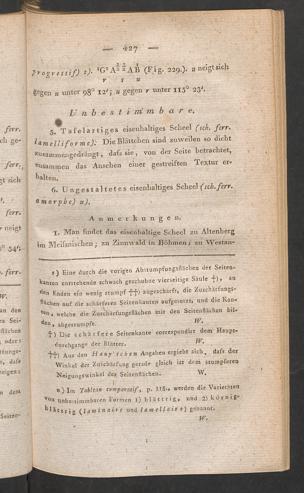 — 427 —
progressif) z). ¹G¹A AB (Fig. 229.). u neigt sich
r s u
gegen s unter 98° 12'; u gegen r unter 115° 23'.
Unbestimmbare.
5. Tafelartiges eisenhaltiges Scheel (sch. ferr.
lamelliforme). Die Blättchen sind zuweilen so dicht
zusammengedrängt, dass sie, von der Seite betrachtet,
zusammen das Ansehen einer gestreiften Textur er-
halten.
6. Ungestaltetes eisenhaltiges Scheel (sch. ferr.
amorphe) u).
Anmerkungen.
1. Man findet das eisenhaltige Scheel zu Altenberg
im Meissnischen; zu Zinnwald in Böhmen; zu Westan-
z) Eine durch die vorigen Abstumpfungsflächen der Seiten-
kanten entstehende schwach geschobene vierseitige Säule †), an
den Enden ein wenig stumpf ††) zugeschärft, die Zuschärfungs-
flächen auf die schärferen Seitenkanten aufgesetzt, und die Kan-
ten, welche die Zuschärfungsflächen mit den Seitenflächen bil-
den, abgestumpft. W.
†) Die schärfere Seitenkante correspondirt dem Haupt-
durchgange der Blätter. W.
††) Aus den Hauy'schen Angaben ergiebt sich, dass der
Winkel der Zuschärfung gerade gleich ist dem stumpferen
Neigungswinkel der Seitenflächen. W.
u) Im Tableau comparatif, p. 118., werden die Varietäten
von unbestimmbaren Formen 1) blättrig, und 2) körnig-
blättrig (laminaire und lamellaire) genannt.
W.
ferr.